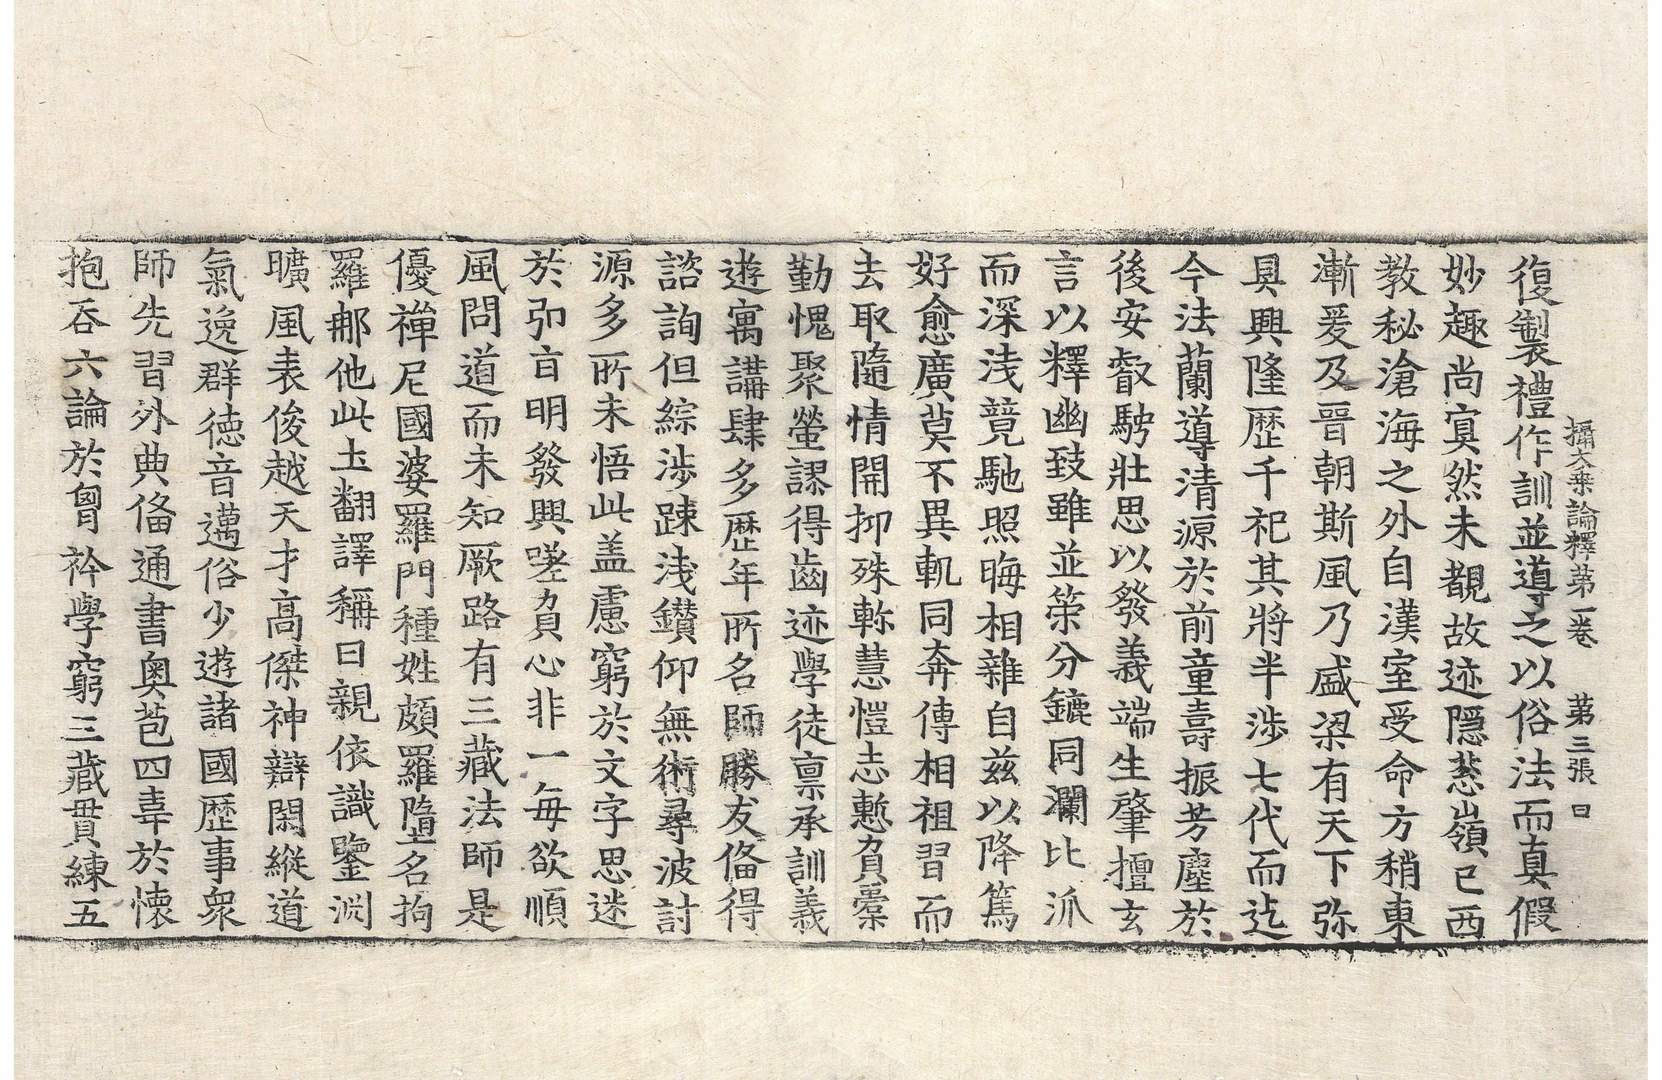 攝大乗論釋苐一卷　苐三張　曰
復製禮作訓並導之以俗法而真假
妙趣尚寘然未覩故迹隠葱嶺已西
教秘滄海之外自漢室受命方稍東
漸爰及晉朝斯風乃盛梁有天下弥
具興隆歷千祀其將半涉七代而迄
今法蘭導清源於前童壽振芳塵於
後安叡騁壯思以發義端生肇擅玄
言以釋幽致雖並策分鑣同瀾比泒
而深浅競馳照晦相雜自兹以降篤
好愈廣莫不異軌同奔傳相祖習而
去取隨情開抑殊軫慧愷志慙負橐
勤愧聚螢謬得齒迹學徒禀承訓義
遊寓講肆多歷年所名師勝友俻得
諮詢但綜涉踈浅鑽仰無術尋波討
源多所未悟此盖慮窮於文字思迷
於弘旨明發興嗟負心非一每欲順
風問道而未知厥路有三藏法師是
優禪尼國婆羅門種姓頗羅墮名拘
羅郍他此圡翻譯稱曰親依識鑒渊
曠風表俊越天才高傑神辯閑縱道
氣逸群德音邁俗少遊諸國歷事衆
師先習外典俻通書奥苞四韋於懐
抱吞六論於胷衿學窮三藏貫練五